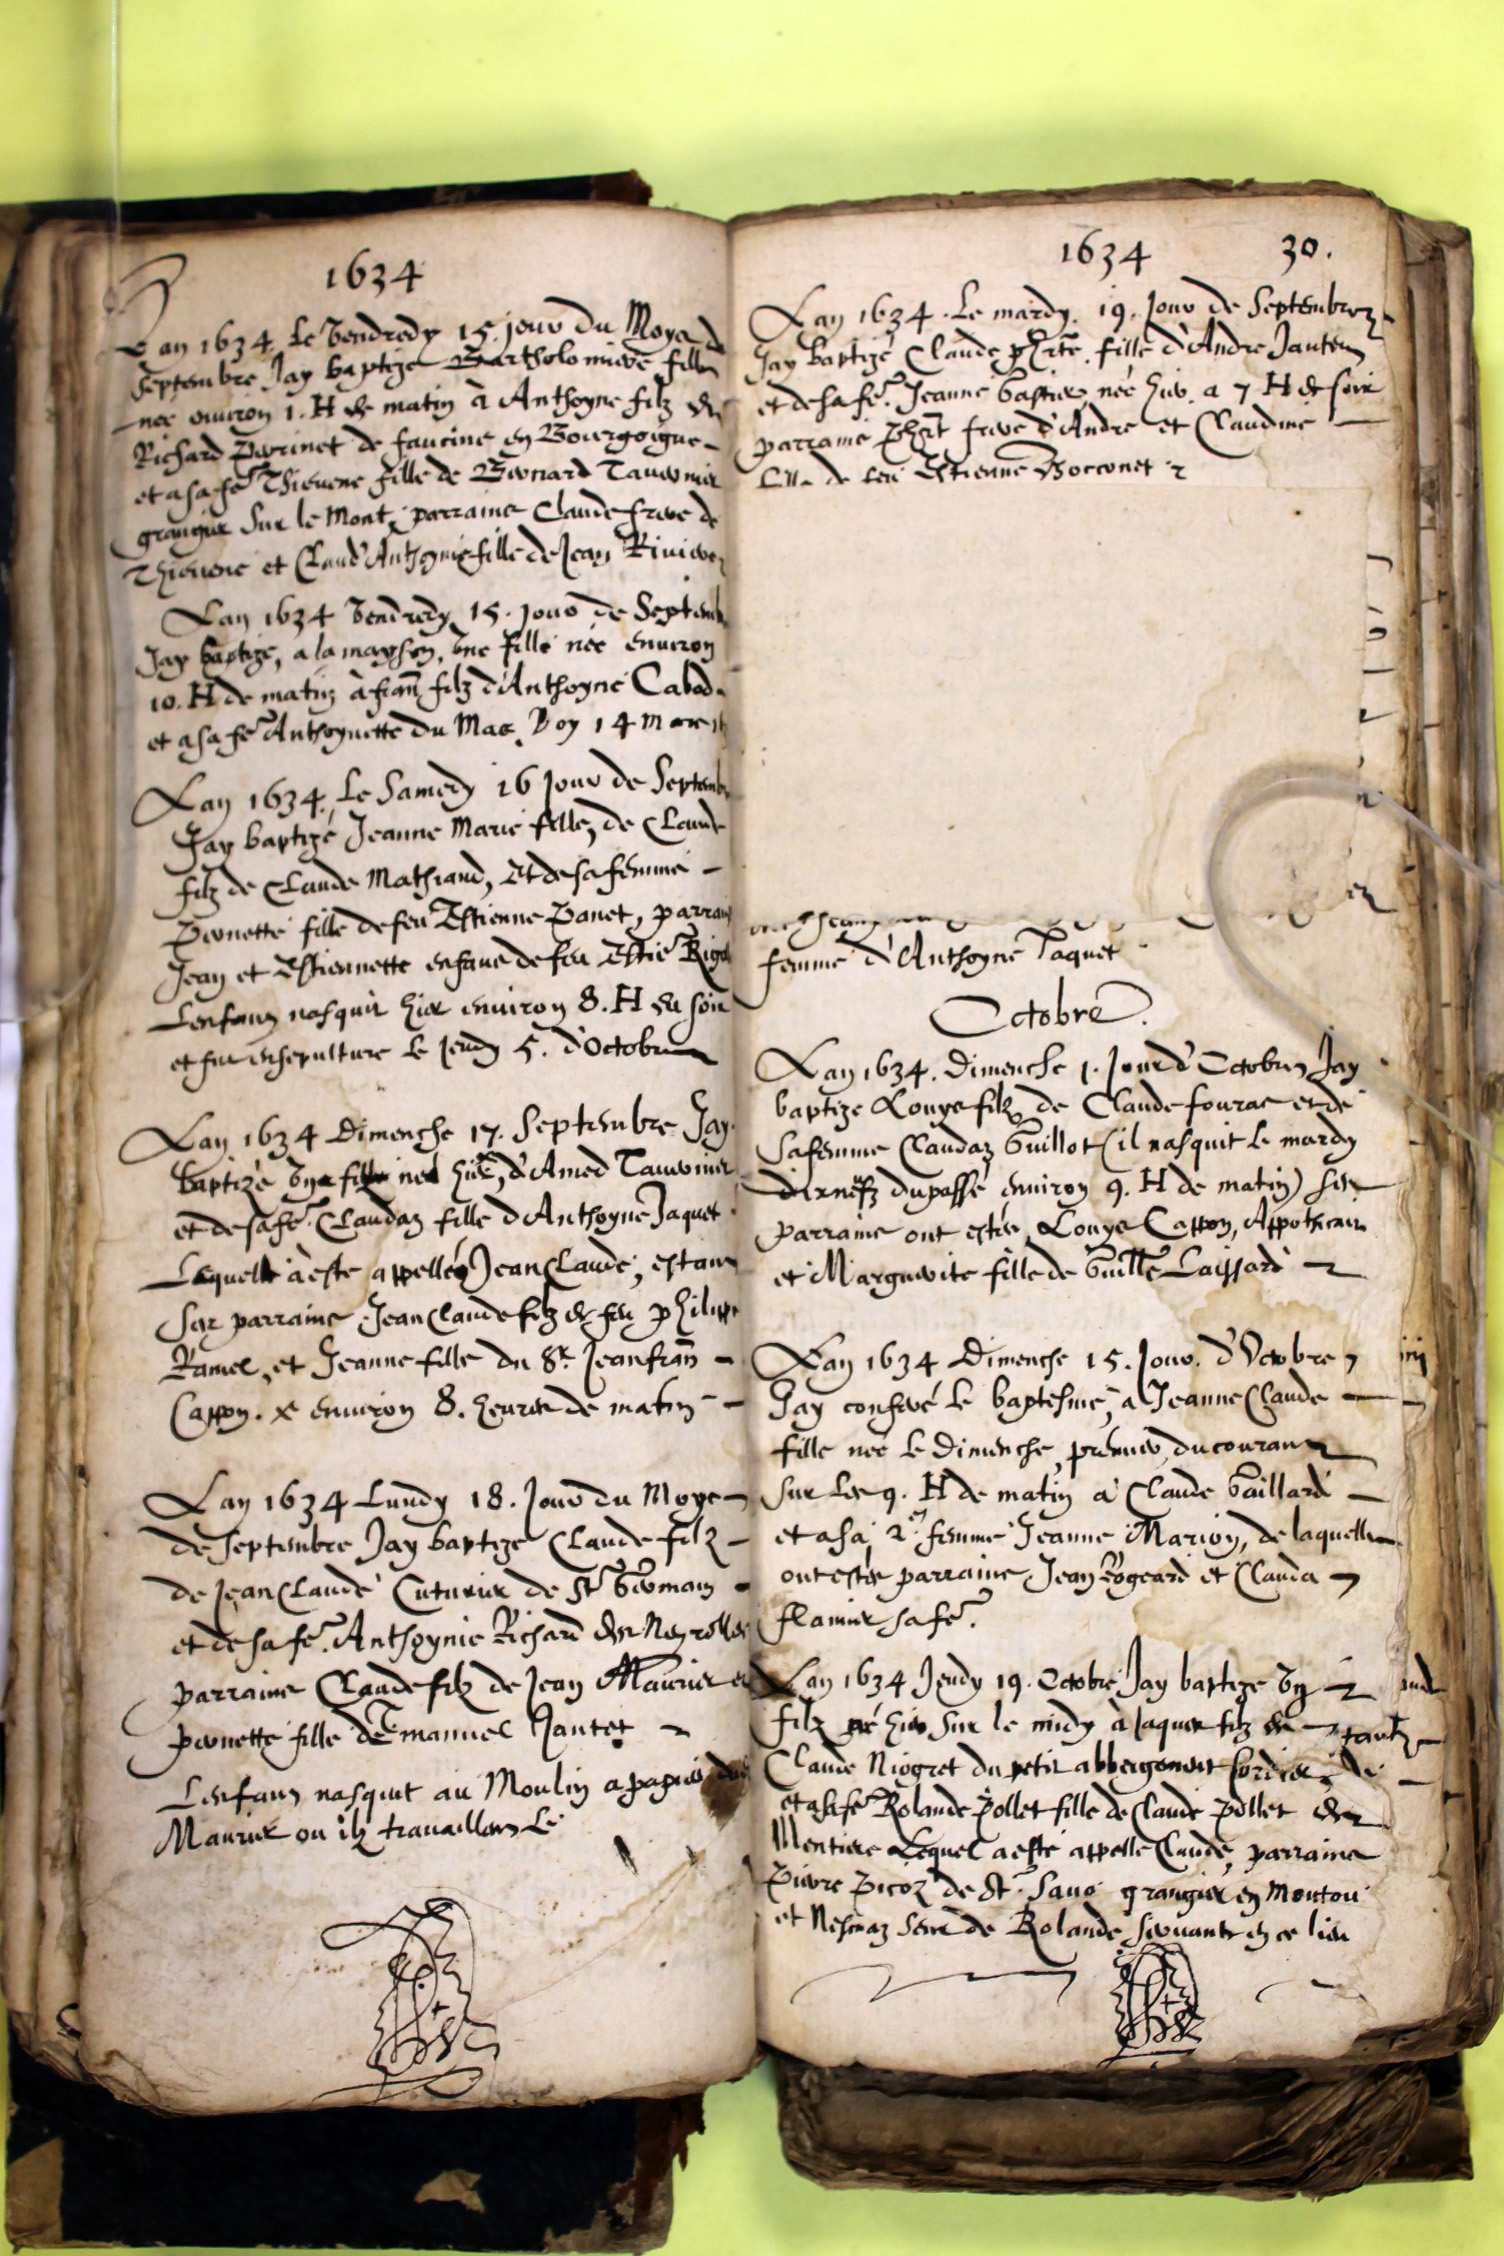 1634
Lan 1634. Le Vendredy 15. jour du Moys de
Septembre Jay baptize Bartholomieve fille
nee environ 1. H de matin à Anthoyne filz de
Richard Perrinet de faucine en Bourgoigne
et a sa fe Thievene fille de Bernard Tavernier
grangier sur le Mont, parrains Claude frere de
Thievene et Claud'Anthoynie fille de Jean Riviere
Lan 1634 Vendredy 15. jour de Septemb
Jay baptizé, a la mayson, une fille née environ
10. H de matin à fran filz d'Anthoyne Cabod
et a sa fe Anthoynette du Mas. Voy 14 M
Lan 1634. Le Samedy 16 jour de Septemb
Jay baptizé Jeanne Marie fille, de Claude
filz de Claude Mathiaud, Et de sa femme
Pernette fille de feu Estienne Panet, parrain
Jean et Estiennette enfans de feu Estie Rigo
Lenfant nasquit hier environ 8. H du soir
et fut ensepulture le jeudy 5. d'Octobre
Lan 1634 Dimenche 17. Septembre Jay
baptizé une fille neé hier, d'Amed Tavernier
et de sa fe. Claudaz fille d'Anthoyne Jaquet
Laquelle à este appelleé Jean Claude, estans
ses parrains Jean Claude filz de feu Philippe
Ramel, et Jeanne fille du Sr. Jean fran
Cappon. X environ 8. heures de matin
Lan 1634 Lundy 18. Jour du Moys
de Septembre Jay baptize Claude filz
de Jean Claude Cuturier de St Germain
et de sa fe. Anthoynie Richard des Neyrolles
parrains Claude filz de Jean Maurier et
pernette fille d'Emanuel Jantet
Lenfant nasquit au Moulin a papier
Maurier ou ilz travaillent
1634 30.
Lan 1634. Le mardy. 19. Jour de Septembre
Jay baptizé Claude phrte. fille d'Andre Janten
et de sa fe. Jeanne bastier, neé hier. a 7 H de soir
parrains Phrt frere d'Andre et Claudine
de feu Estienne Bocconet
femme d'Anthoyne Jaquet
Octobre.
Lan 1634. Dimenche 1. Jour d'Octobre Jay
baptize Louys filz de Claude fouras et de
sa femme Claudaz Guillot (il nasquit le mardy
dixneufz du passé environ 9. H de matin) ses
parrains ont estés Louys Cappon, Appothicaire
et Marguerite fille de Guille Laissard
Lan 1634 Dimenche 15. Jour. d'Octobre
Jay conferé le baptesme, a Jeanne Claude
fille neé le Dimenche, premier du courant
sur les 9. H de matin à Claude Gaillard
et a sa 2e femme Jeanne Marion, de laquelle
ont estés parrains Jean Rogeard et Clauda
flamier sa fe.
Lan 1634 Jeudy 19. Octobre Jay baptize ung
filz né hier sur le midy à Jaques filz de
Claude Niogret du petit abbergement Cordier
et a sa fe Rolande Pollet fille de Claude Pollet des
Mentiere Lequel a esté appelle Claude, parrains
Pierre Picoz de St. Sauo grangier en Montou
et Nesmaz seur de Rolande servante en ce lieu